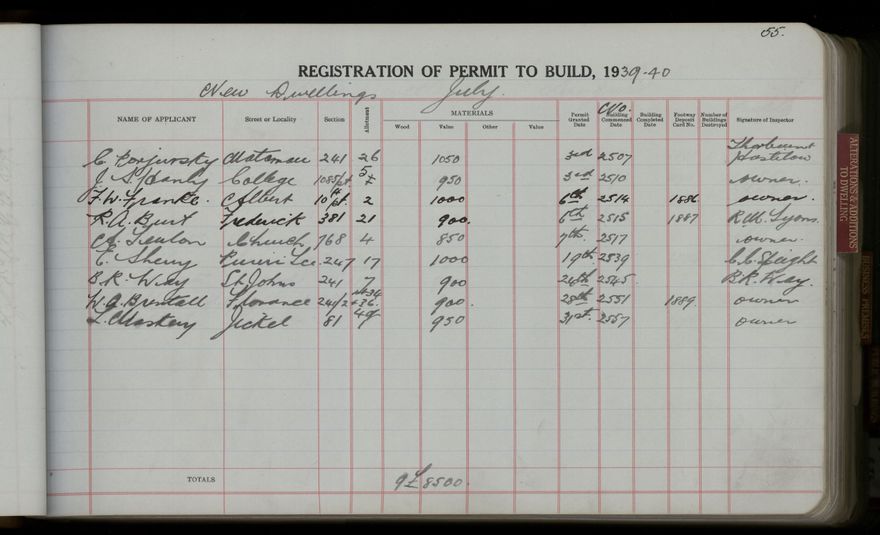 55.
REGISTRATION OF PERMIT TO BUILD, 1939-40
New Dwellings July.
NAME OF APPLICANT Street or Locality Section Allotment MATERIALS Wood Value Other Value Permit Granted Date No. Building Commenced Date Building Completed Date Footway Deposit Card No. Number of Buildings Destroyed Signature of Inspector
241 26 1050 3rd 2507
College 5 950 3rd 2510 owner.
F. W. Franke. Albert 2 1000 6th 2514 1886 owner.
R. A. Burt Frederick 381 21 900. 6th 2515 1887 R. M. Lyons.
Church 768 4 850 7th. 2517 owner.
Sherry 247 17 1000 19th 2539
B. R. Way St Johns 241 7 900 24th 2545. B. R. Way.
Florance 900. 28th 2551 1889. owner
Jickel 81 49 950 31st. 2557 owner
TOTALS 9 £ 8500.
ALTERATIONS & ADDITIONS TO DWELLING
BUSINESS PREMISES